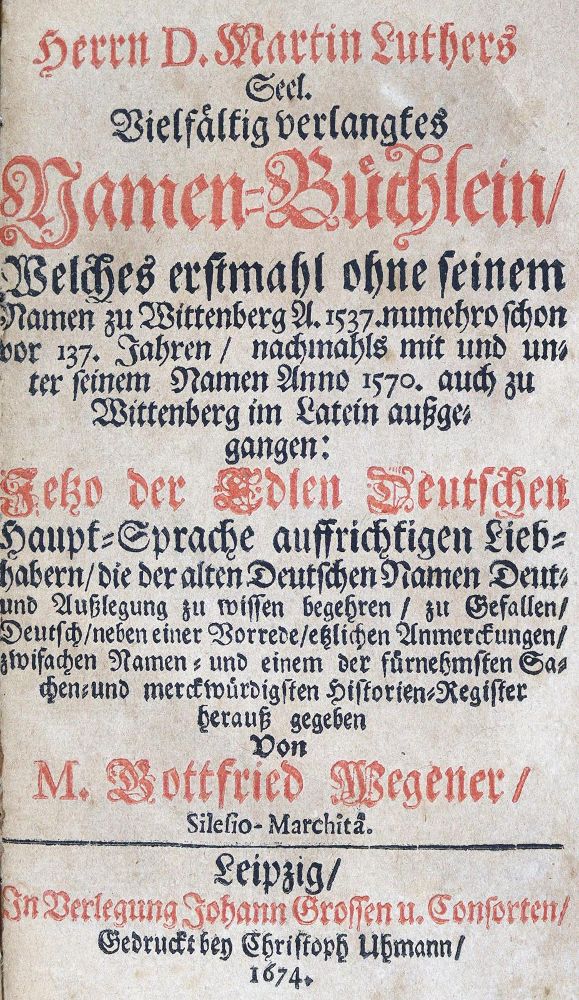 Herrn D. Martin Luthers
Seel.
Vielfältig verlangtes
Namen-Büchlein/
Welches erstmahl ohne seinem
Namen zu Wittenberg A. 1537. numehro schon
vor 137. Jahren / nachmahls mit und un-
ter seinem Namen Anno 1570. auch zu
Wittenberg im Latein außge-
gangen:
Jetzo der Edlen Deutschen
Haupt-Sprache auffrichtigen Lieb-
habern/ die der alten Deutschen Namen Deut-
und Außlegung zu wissen begehren / zu Gefallen/
Deutsch/ neben einer Vorrede/ etzlichen Anmerckungen/
zwifachen Namen- und einem der fürnehmsten Sa-
chen- und merckwürdigsten Historien-Register
herauß gegeben
Von
M. Gottfried Wegener/
Silesio-Marchitâ.
Leipzig/
In Verlegung Johann Grossen u. Consorten/
Gedruckt bey Christoph Uhmann/
1674.